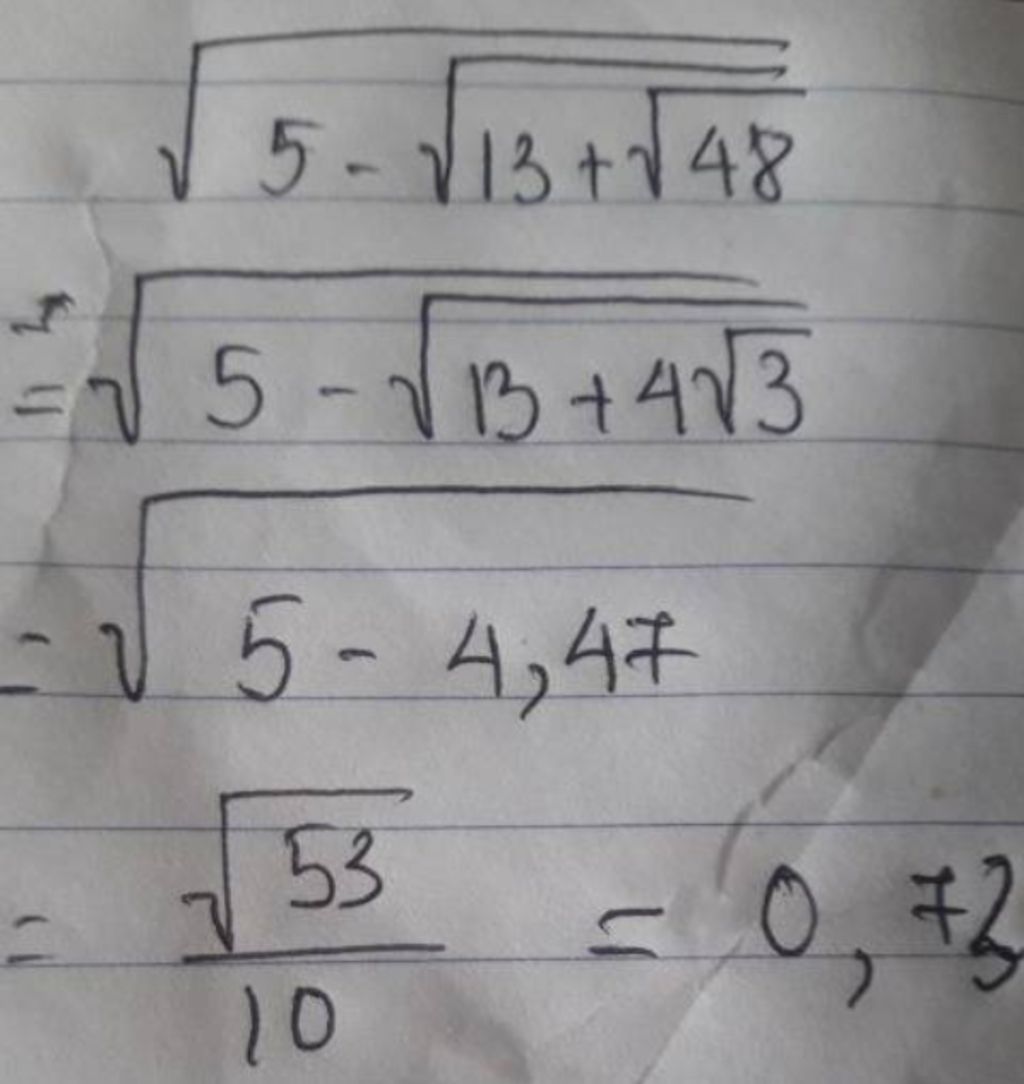 √(5 - √(13 + √48))
= √(5 - √(13 + 4√3))
= √(5 - 4,47)
= √53/10 = 0,73